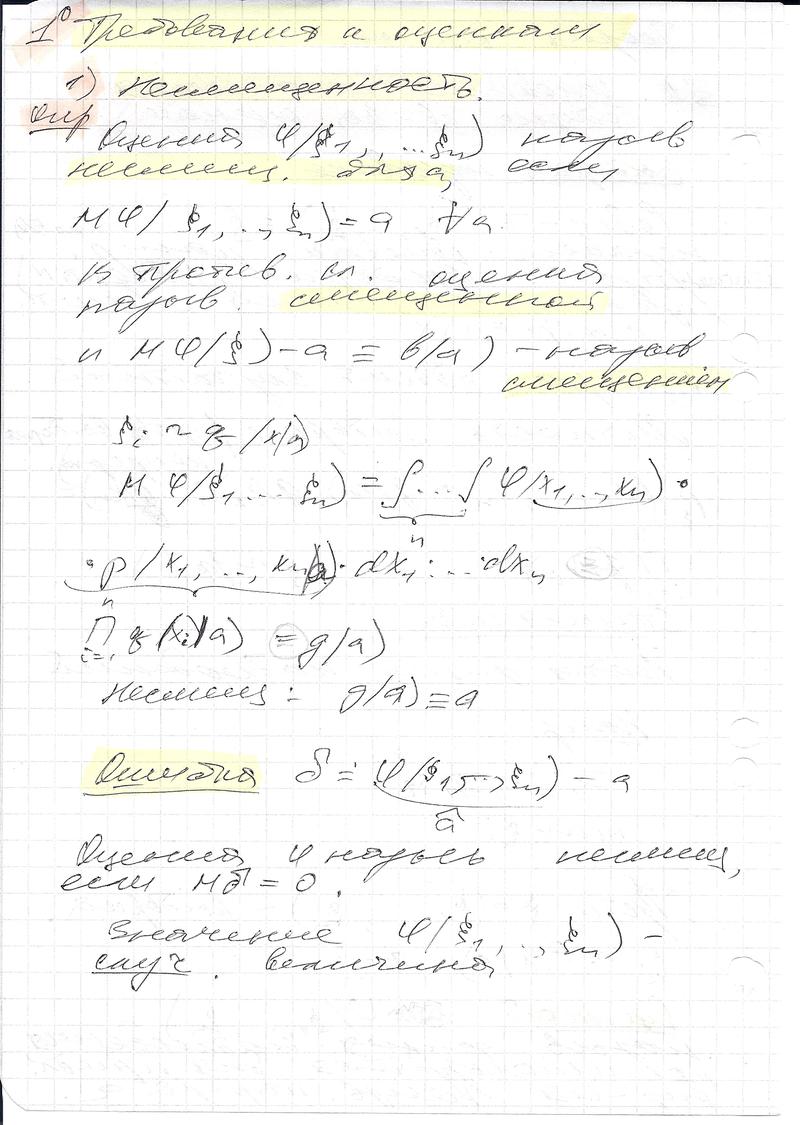 1⁰ Требования к оценкам
1) Несмещенность.
Опр
Оценка φ(ξ₁, ... ξₙ) назыв
несмещ. для a, если
M φ(ξ₁, .., ξₙ) = a ∀a
В против. сл. оценка
назыв. смещенной
и M φ(ξ) - a ≡ b(a) - назыв
смещением
ξᵢ ~ q(x|a)
M φ(ξ₁ ... ξₙ) = ∫...∫ φ(x₁, .., xₙ) ·
n
· p(x₁, .., xₙ|a) · dx₁ · ... · dxₙ =
n
∏ q(xᵢ|a) = g(a)
i=1
Несмещ: g(a) ≡ a
Ошибка δ = φ(ξ₁, .., ξₙ) - a
ã
Оценка φ назыв несмещ,
если Mδ = 0.
Значение φ(ξ₁, .., ξₙ) -
случ. величина